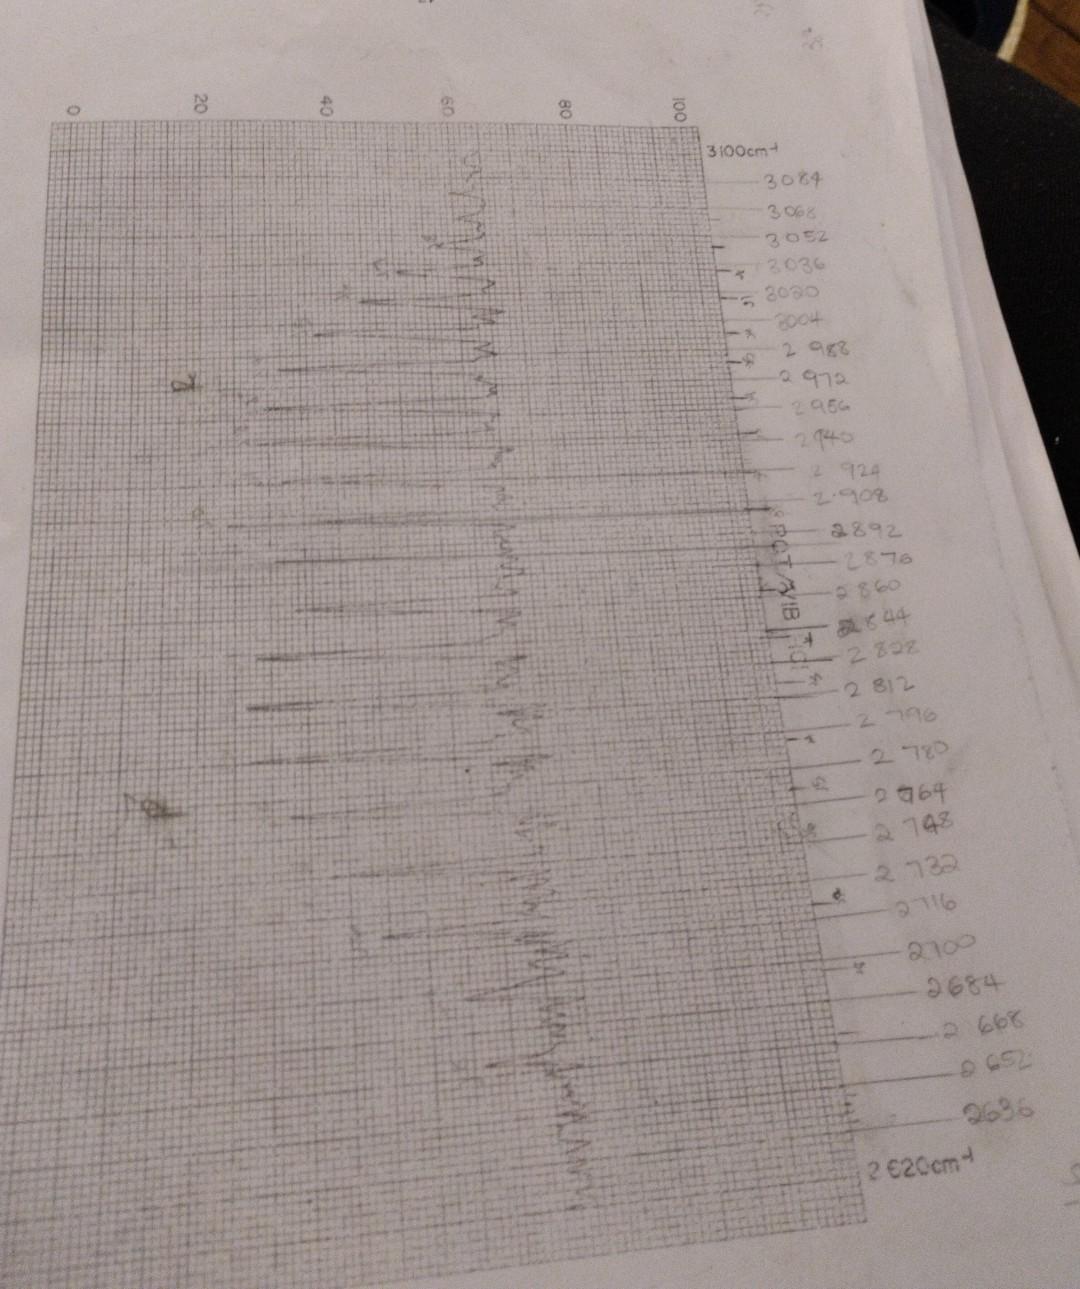 0 20 40 60 80 100
3100cm-1
3084
3068
3052
3036
3020
3004
2988
2972
2956
2940
2924
2908
2892
2876
2860
2844
2828
2812
2796
2780
2764
2748
2732
2716
2700
2684
2668
2652
2636
2620cm-1